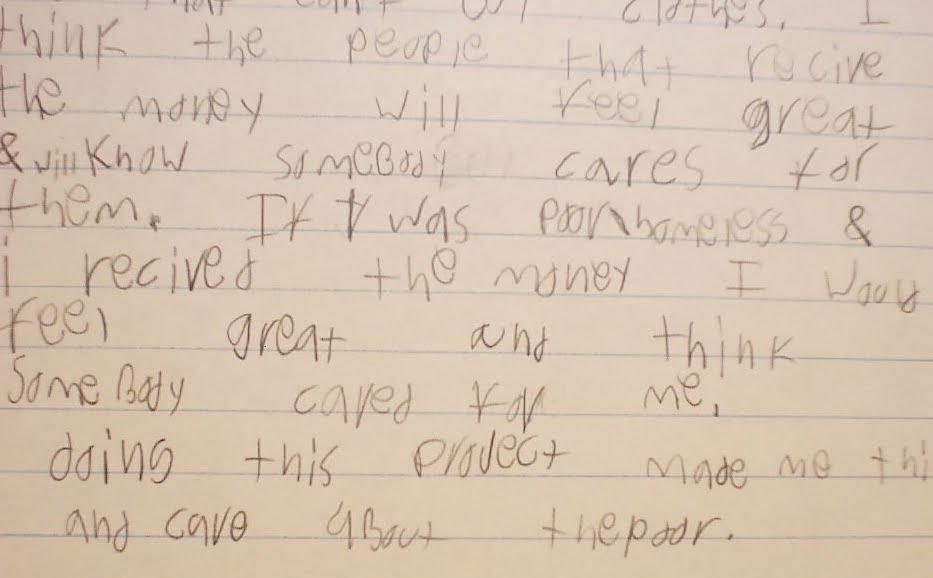 clothes. I
think the people that recive
the money will feel great
& will Know someBody cares for
them. If I was poor\homeless &
i recived the money I woud
feel great and think
SomeBody cared for me.
doing this project made me thi
and care aBout the poor.